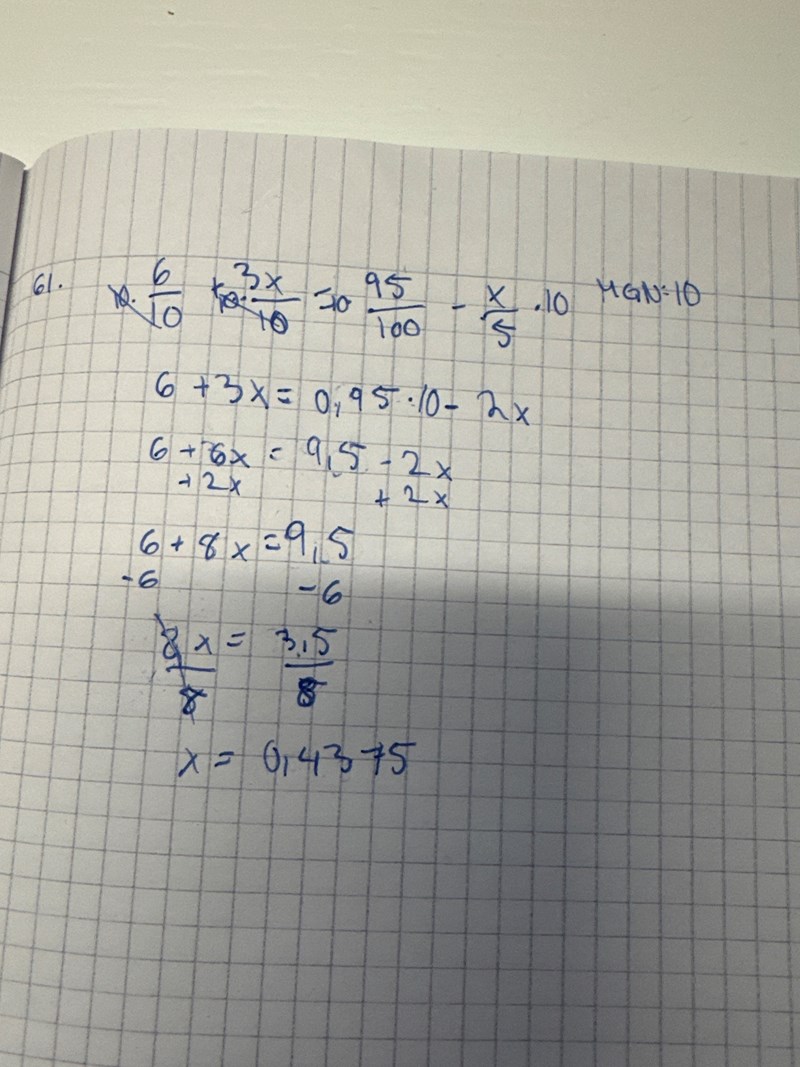 61. 10· 6/10 + 10· 3x/10 = 10 95/100 - x/5 ·10 MGN=10
6 + 3x = 0,95·10 - 2x
6 + 6x = 9,5 - 2x
+2x + 2x
6 + 8x = 9,5
-6 -6
8x/8 = 3,5/8
x = 0,4375